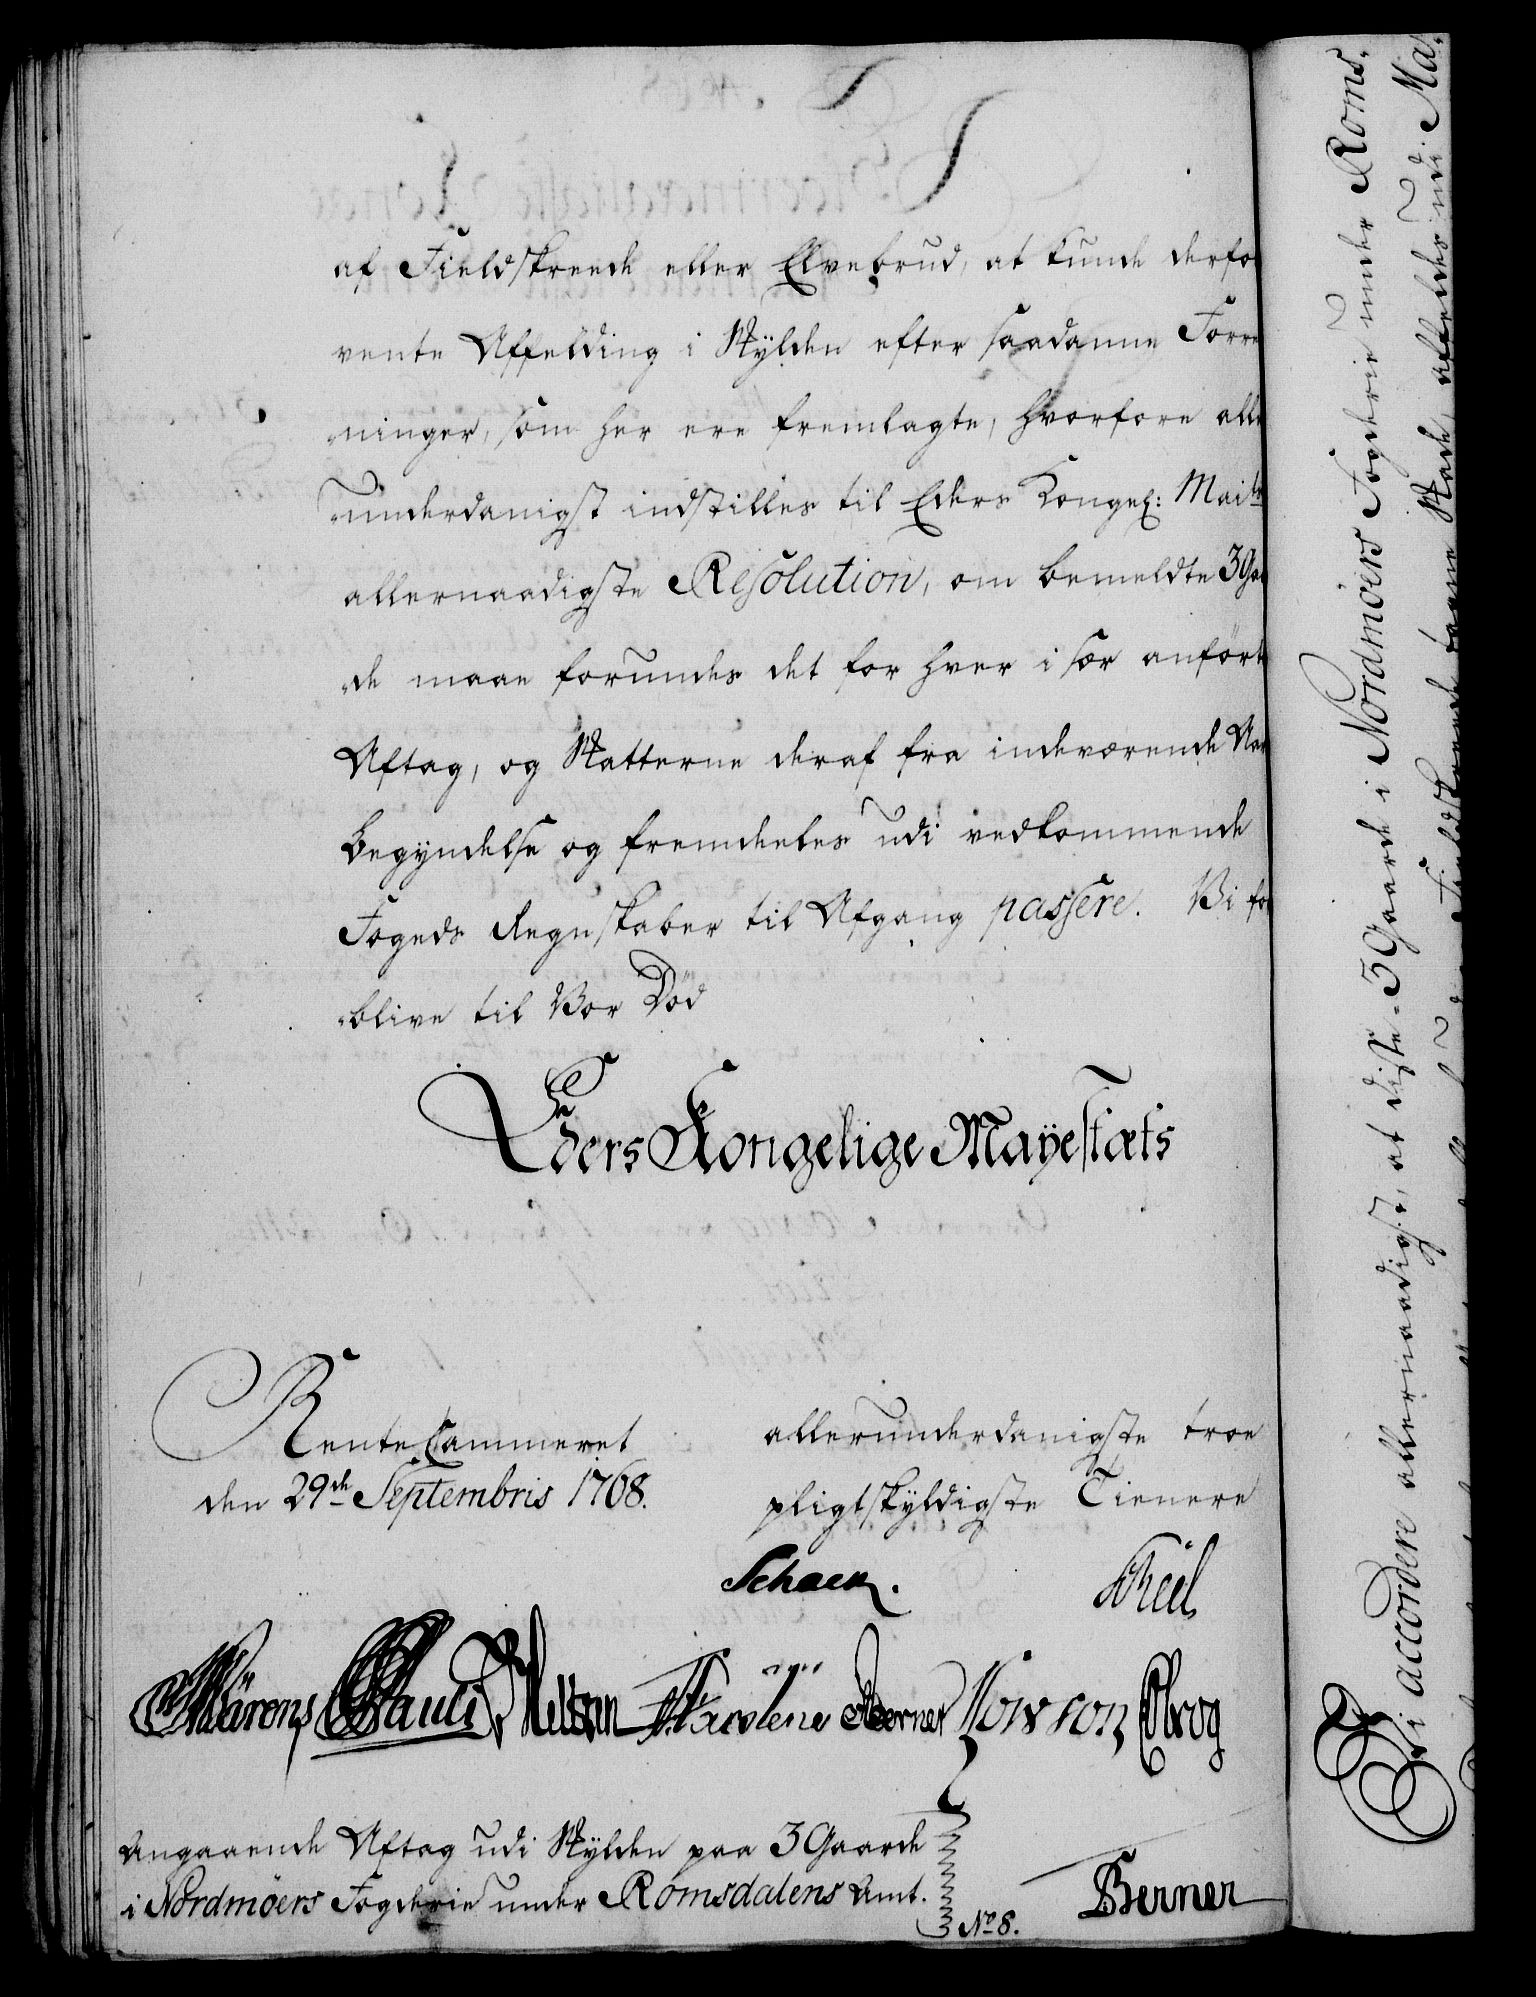 af Fieldskreede eller Elvebrud, at kunde derfo
vente Affelding i Skylden efter saadanne Forre
ninger, som her ere fremlagte, hvorfore alle
underdanigst indstilles til Eders Kongel: Maits
allernaadigste Resolution, om bemeldte 3 Gaa
de maae forundes det for hver i sær anförte
Aftag, og Skatterne deraf fra indeværende Aar
Begyndelse og fremdeeles udi vedkommende
Fogeds Regnskaber til Afgang passere. Vi for
blive til Vor Död
Eders Kongelige Mayestæts
RenteCammeret
den 29de Septembris 1768.
allerunderdanigste troe
pligtskyldigste Tienere
Schack.
Pauli
Berner
Angaaende Aftag udi Skylden paa 3 Gaarde
i Nordmöers Fogderie under Romsdalens Amt.
No 8.
Berner
Vi accordere allernaadigst, at disse 3 Gaarde i Nordmöers Fogderie under Roms-